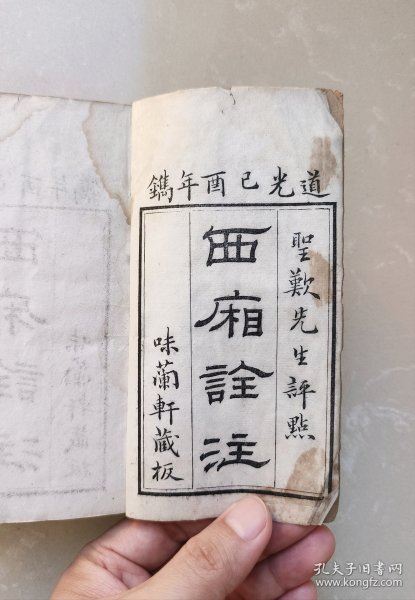 道光己酉年鐫
聖歎先生評點
西廂詮注
味蘭軒藏板
孔夫子旧书网
www.kongfz.com